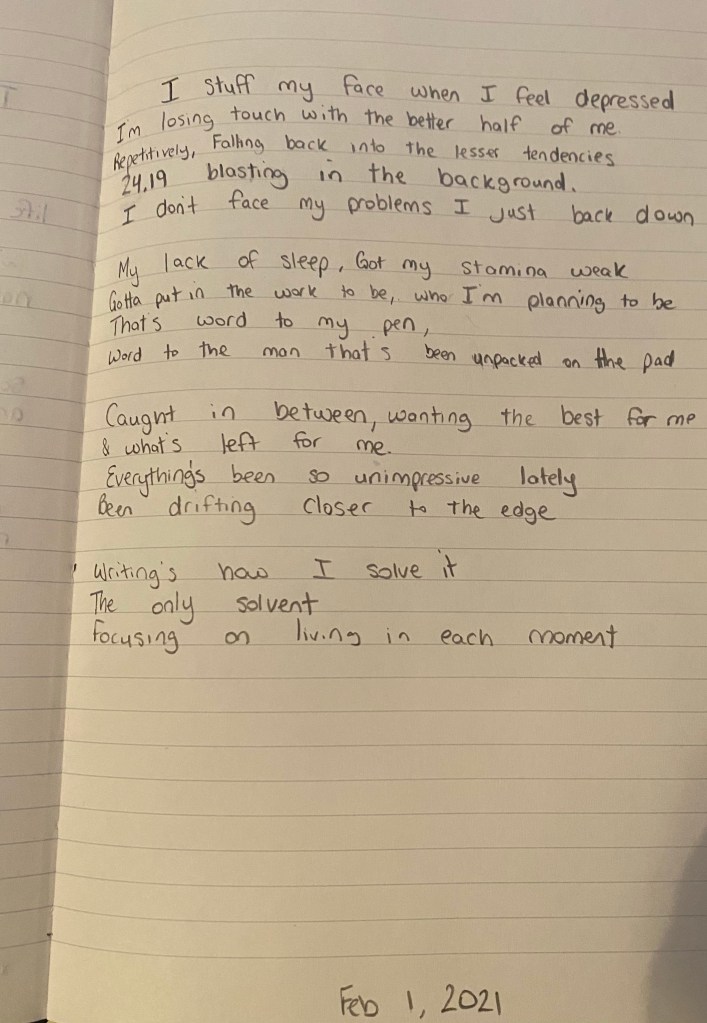 I stuff my face when I feel depressed
I'm losing touch with the better half of me.
Repetitively, Falling back into the lesser tendencies
24.19 blasting in the background.
I don't face my problems I just back down
My lack of sleep, Got my stamina weak
Gotta put in the work to be, who I'm planning to be
That's word to my pen,
Word to the man that's been unpacked on the pad
Caught in between, wanting the best for me
& what's left for me.
Everything's been so unimpressive lately
Been drifting closer to the edge
Writing's how I solve it
The only solvent
Focusing on living in each moment
Feb 1, 2021